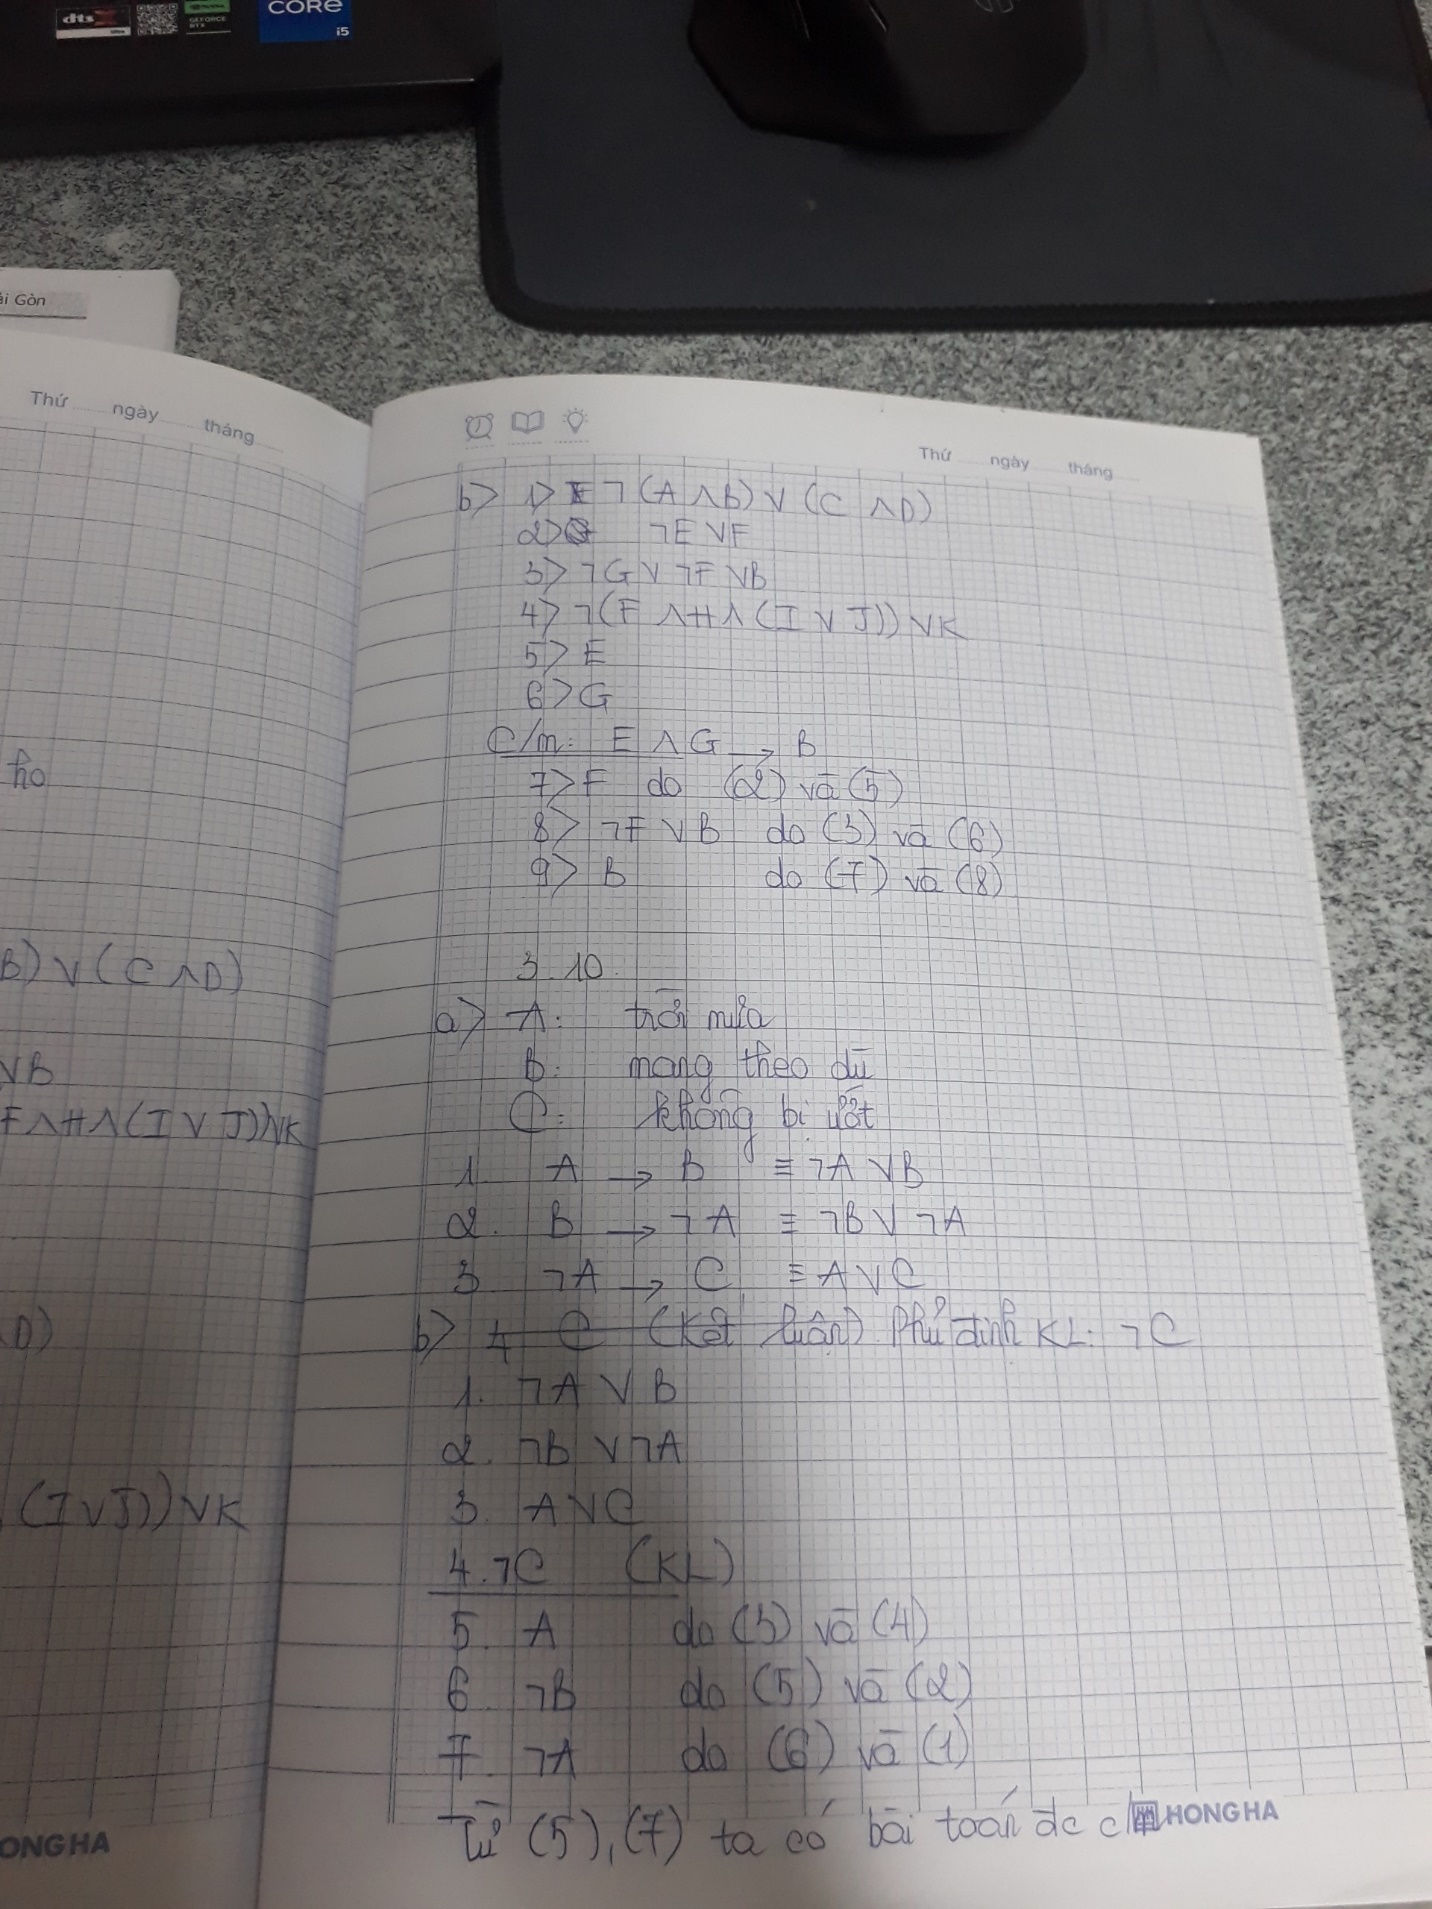 dts X
Ultra
GEFORCE
RTX
CORE
i5
ài Gòn
Thứ ngày tháng
ho
B) ∨ (C ∧ D)
∨ B
F ∧ H ∧ (I ∨ J)) ∨ K
D)
(I ∨ J)) ∨ K
ONG HA
Thứ ngày tháng
b> 1> ¬ (A ∧ B) ∨ (C ∧ D)
2> ¬E ∨ F
3> ¬G ∨ ¬F ∨ B
4> ¬(F ∧ H ∧ (I ∨ J)) ∨ K
5> E
6> G
C/m: E ∧ G → B
7> F do (2) và (5)
8> ¬F ∨ B do (3) và (6)
9> B do (7) và (8)
3.10.
a> A: trời mưa
B: mang theo dù
C: không bị ướt
1. A → B ≡ ¬A ∨ B
2. B → ¬A ≡ ¬B ∨ ¬A
3. ¬A → C ≡ A ∨ C
b> 4 C (Kết luận) Phủ định KL: ¬C
1. ¬A ∨ B
2. ¬B ∨ ¬A
3. A ∨ C
4. ¬C (KL)
5. A do (3) và (4)
6. ¬B do (5) và (2)
7. ¬A do (6) và (1)
Từ (5), (7) ta có bài toán đc c
HONG HA